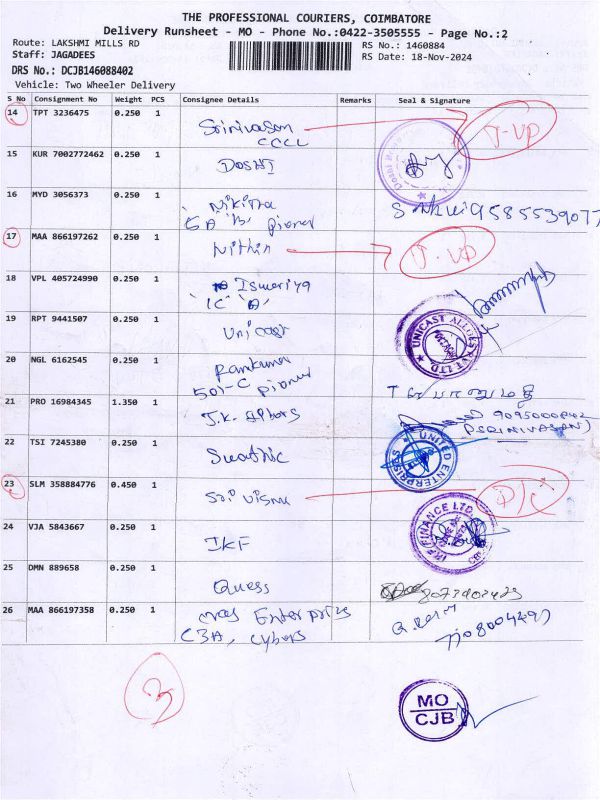 THE PROFESSIONAL COURIERS, COIMBATORE
Delivery Runsheet - MO - Phone No.:0422-3505555 - Page No.:2
Route: LAKSHMI MILLS RD
RS No.: 1460884
Staff: JAGADEES
RS Date: 18-Nov-2024
DRS No.: DCJB146088402
Vehicle: Two Wheeler Delivery
S No Consignment No Weight PCS Consignee Details Remarks Seal & Signature
14 TPT 3236475 0.250 1 Srinivasan
CCCL
15 KUR 7002772462 0.250 1 DOSHI
16 MYD 3056373 0.250 1 Nikitha
5A 'B' pioner
17 MAA 866197262 0.250 1 Nithin
18 VPL 405724990 0.250 1 Iswariya
19 RPT 9441507 0.250 1 Unicast
UNICAST ALLOYS PVT LTD
20 NGL 6162545 0.250 1
501-C pioner
21 PRO 16984345 1.350 1 J.K.
(SRINIVASAN)
22 TSI 7245380 0.250 1
UNITED ENTERPRISES
23 SLM 358884776 0.450 1 Sri Visnu
24 VJA 5843667 0.250 1 IKF
IKF FINANCE LTD.
25 DMN 889658 0.250 1 Quess
26 MAA 866197358 0.250 1 Enterprize
C3A, Cybors
3
MO
CJB